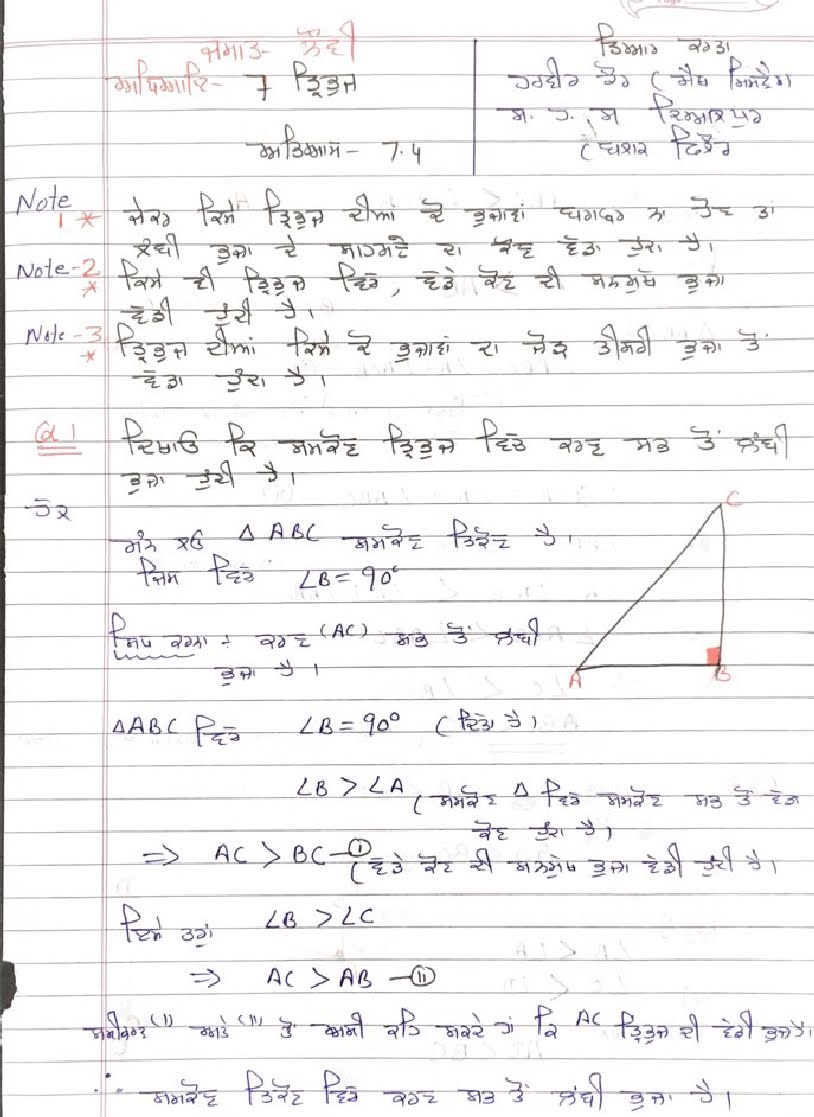 ਜਮਾਤ- ਨੌਵੀਂ
ਅਧਿਆਇ- 7 ਤ੍ਰਿਭੁਜ
ਅਭਿਆਸ- 7.4
ਤਿਆਰ ਕਰਤਾ
ਕੌਰ (ਮੈਥ ਮਿਸਟ੍ਰੈਸ)
ਸ. ਹ. ਸ
Note 1 * ਜੇਕਰ ਕਿਸੇ ਤ੍ਰਿਭੁਜ ਦੀਆਂ ਦੋ ਭੁਜਾਵਾਂ ਬਰਾਬਰ ਨਾ ਹੋਣ ਤਾਂ
ਲੰਬੀ ਭੁਜਾ ਦੇ ਸਾਹਮਣੇ ਦਾ ਕੋਣ ਵੱਡਾ ਹੁੰਦਾ ਹੈ।
Note-2 * ਕਿਸੇ ਵੀ ਤ੍ਰਿਭੁਜ ਵਿੱਚ, ਵੱਡੇ ਕੋਣ ਦੀ ਸਨਮੁੱਖ ਭੁਜਾ
ਵੱਡੀ ਹੁੰਦੀ ਹੈ।
Note-3 * ਤ੍ਰਿਭੁਜ ਦੀਆਂ ਕਿਸੇ ਦੋ ਭੁਜਾਵਾਂ ਦਾ ਜੋੜ ਤੀਸਰੀ ਭੁਜਾ ਤੋਂ
ਵੱਡਾ ਹੁੰਦਾ ਹੈ।
Q1 ਦਿਖਾਓ ਕਿ ਸਮਕੋਣ ਤ੍ਰਿਭੁਜ ਵਿੱਚ ਕਰਣ ਸਭ ਤੋਂ ਲੰਬੀ
ਭੁਜਾ ਹੁੰਦੀ ਹੈ।
ਹੱਲ
ਮੰਨ ਲਓ Δ ABC ਸਮਕੋਣ ਤਿਕੋਣ ਹੈ।
ਜਿਸ ਵਿੱਚ ∠B = 90°
C
A
B
ਸਿੱਧ ਕਰਨਾ :- ਕਰਣ (AC) ਸਭ ਤੋਂ ਲੰਬੀ
ਭੁਜਾ ਹੈ।
ΔABC ਵਿੱਚ ∠B = 90° (ਦਿੱਤਾ ਹੈ)
∠B > ∠A (ਸਮਕੋਣ Δ ਵਿੱਚ ਸਮਕੋਣ ਸਭ ਤੋਂ ਵੱਡਾ
ਕੋਣ ਹੁੰਦਾ ਹੈ)
⇒ AC > BC – (i) (ਵੱਡੇ ਕੋਣ ਦੀ ਸਨਮੁੱਖ ਭੁਜਾ ਵੱਡੀ ਹੁੰਦੀ ਹੈ।
ਇਸੇ ਤਰ੍ਹਾਂ ∠B > ∠C
⇒ AC > AB – (ii)
ਸਮੀਕਰਣ (i) ਅਤੇ (ii) ਤੋਂ ਅਸੀਂ ਕਹਿ ਸਕਦੇ ਹਾਂ ਕਿ AC ਤ੍ਰਿਭੁਜ ਦੀ ਵੱਡੀ ਭੁਜਾ ਹੈ।
∴ ਸਮਕੋਣ ਤਿਕੋਣ ਵਿੱਚ ਕਰਣ ਸਭ ਤੋਂ ਲੰਬੀ ਭੁਜਾ ਹੈ।